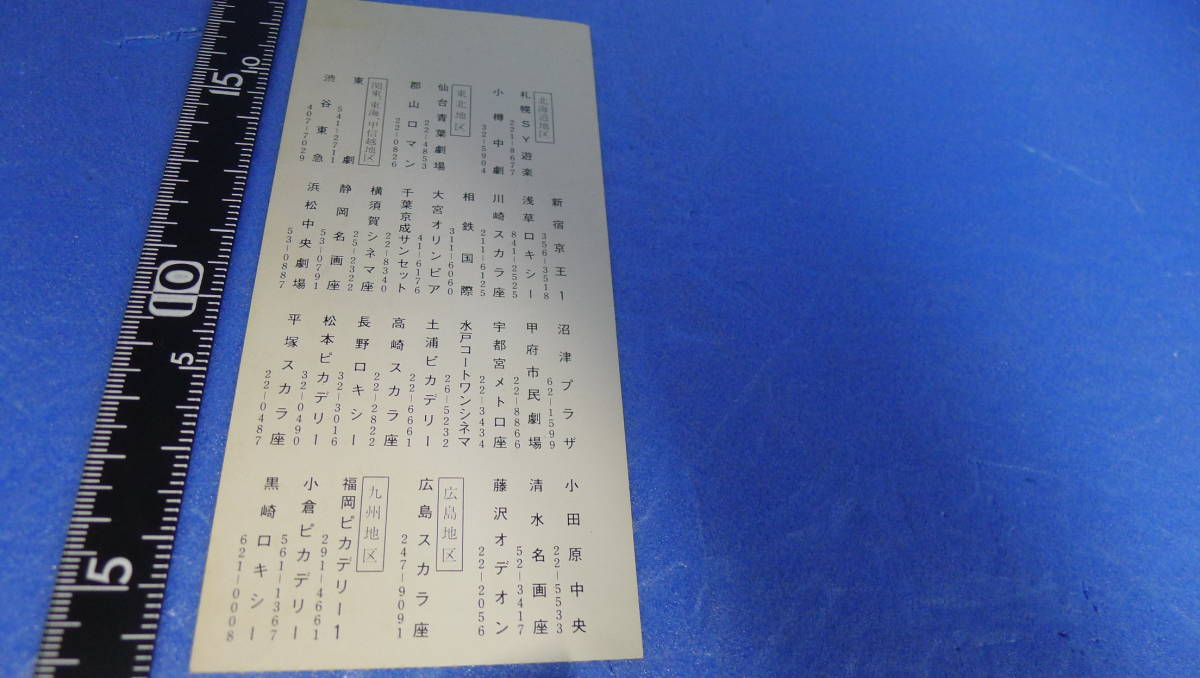 北海道地区
札幌SY遊楽
221-8677
小樽中劇
32-5904
東北地区
仙台青葉劇場
22-4853
郡山ロマン
22-0826
関東・東海・甲信越地区
東劇
541-2711
渋谷東急
407-7029
新宿京王1
356-3518
浅草ロキシー
841-2525
川崎スカラ座
211-6125
相鉄国際
311-6060
大宮オリンピア
41-6176
千葉京成サンセット
22-8340
横須賀シネマ座
25-2322
静岡名画座
53-0791
浜松中央劇場
53-0887
沼津プラザ
62-1599
甲府市民劇場
22-8866
宇都宮メトロ座
22-3434
水戸コートワンシネマ
26-5232
土浦ピカデリー
22-6661
高崎スカラ座
22-2822
長野ロキシー
32-3016
松本ピカデリー
32-0490
平塚スカラ座
22-0487
小田原中央
22-5533
清水名画座
52-3417
藤沢オデオン
22-2056
広島地区
広島スカラ座
247-9091
九州地区
福岡ピカデリー1
291-4661
小倉ピカデリー
561-1367
黒崎ロキシー
621-0008
15
10
10
5
5